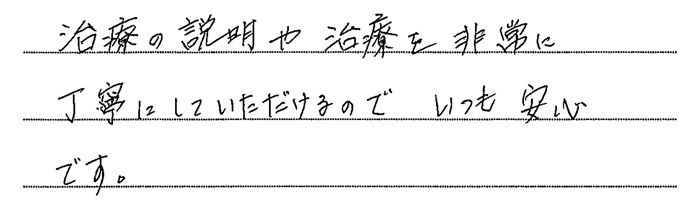 治療の説明や治療を非常に
丁寧にしていただけるので いつも安心
です。